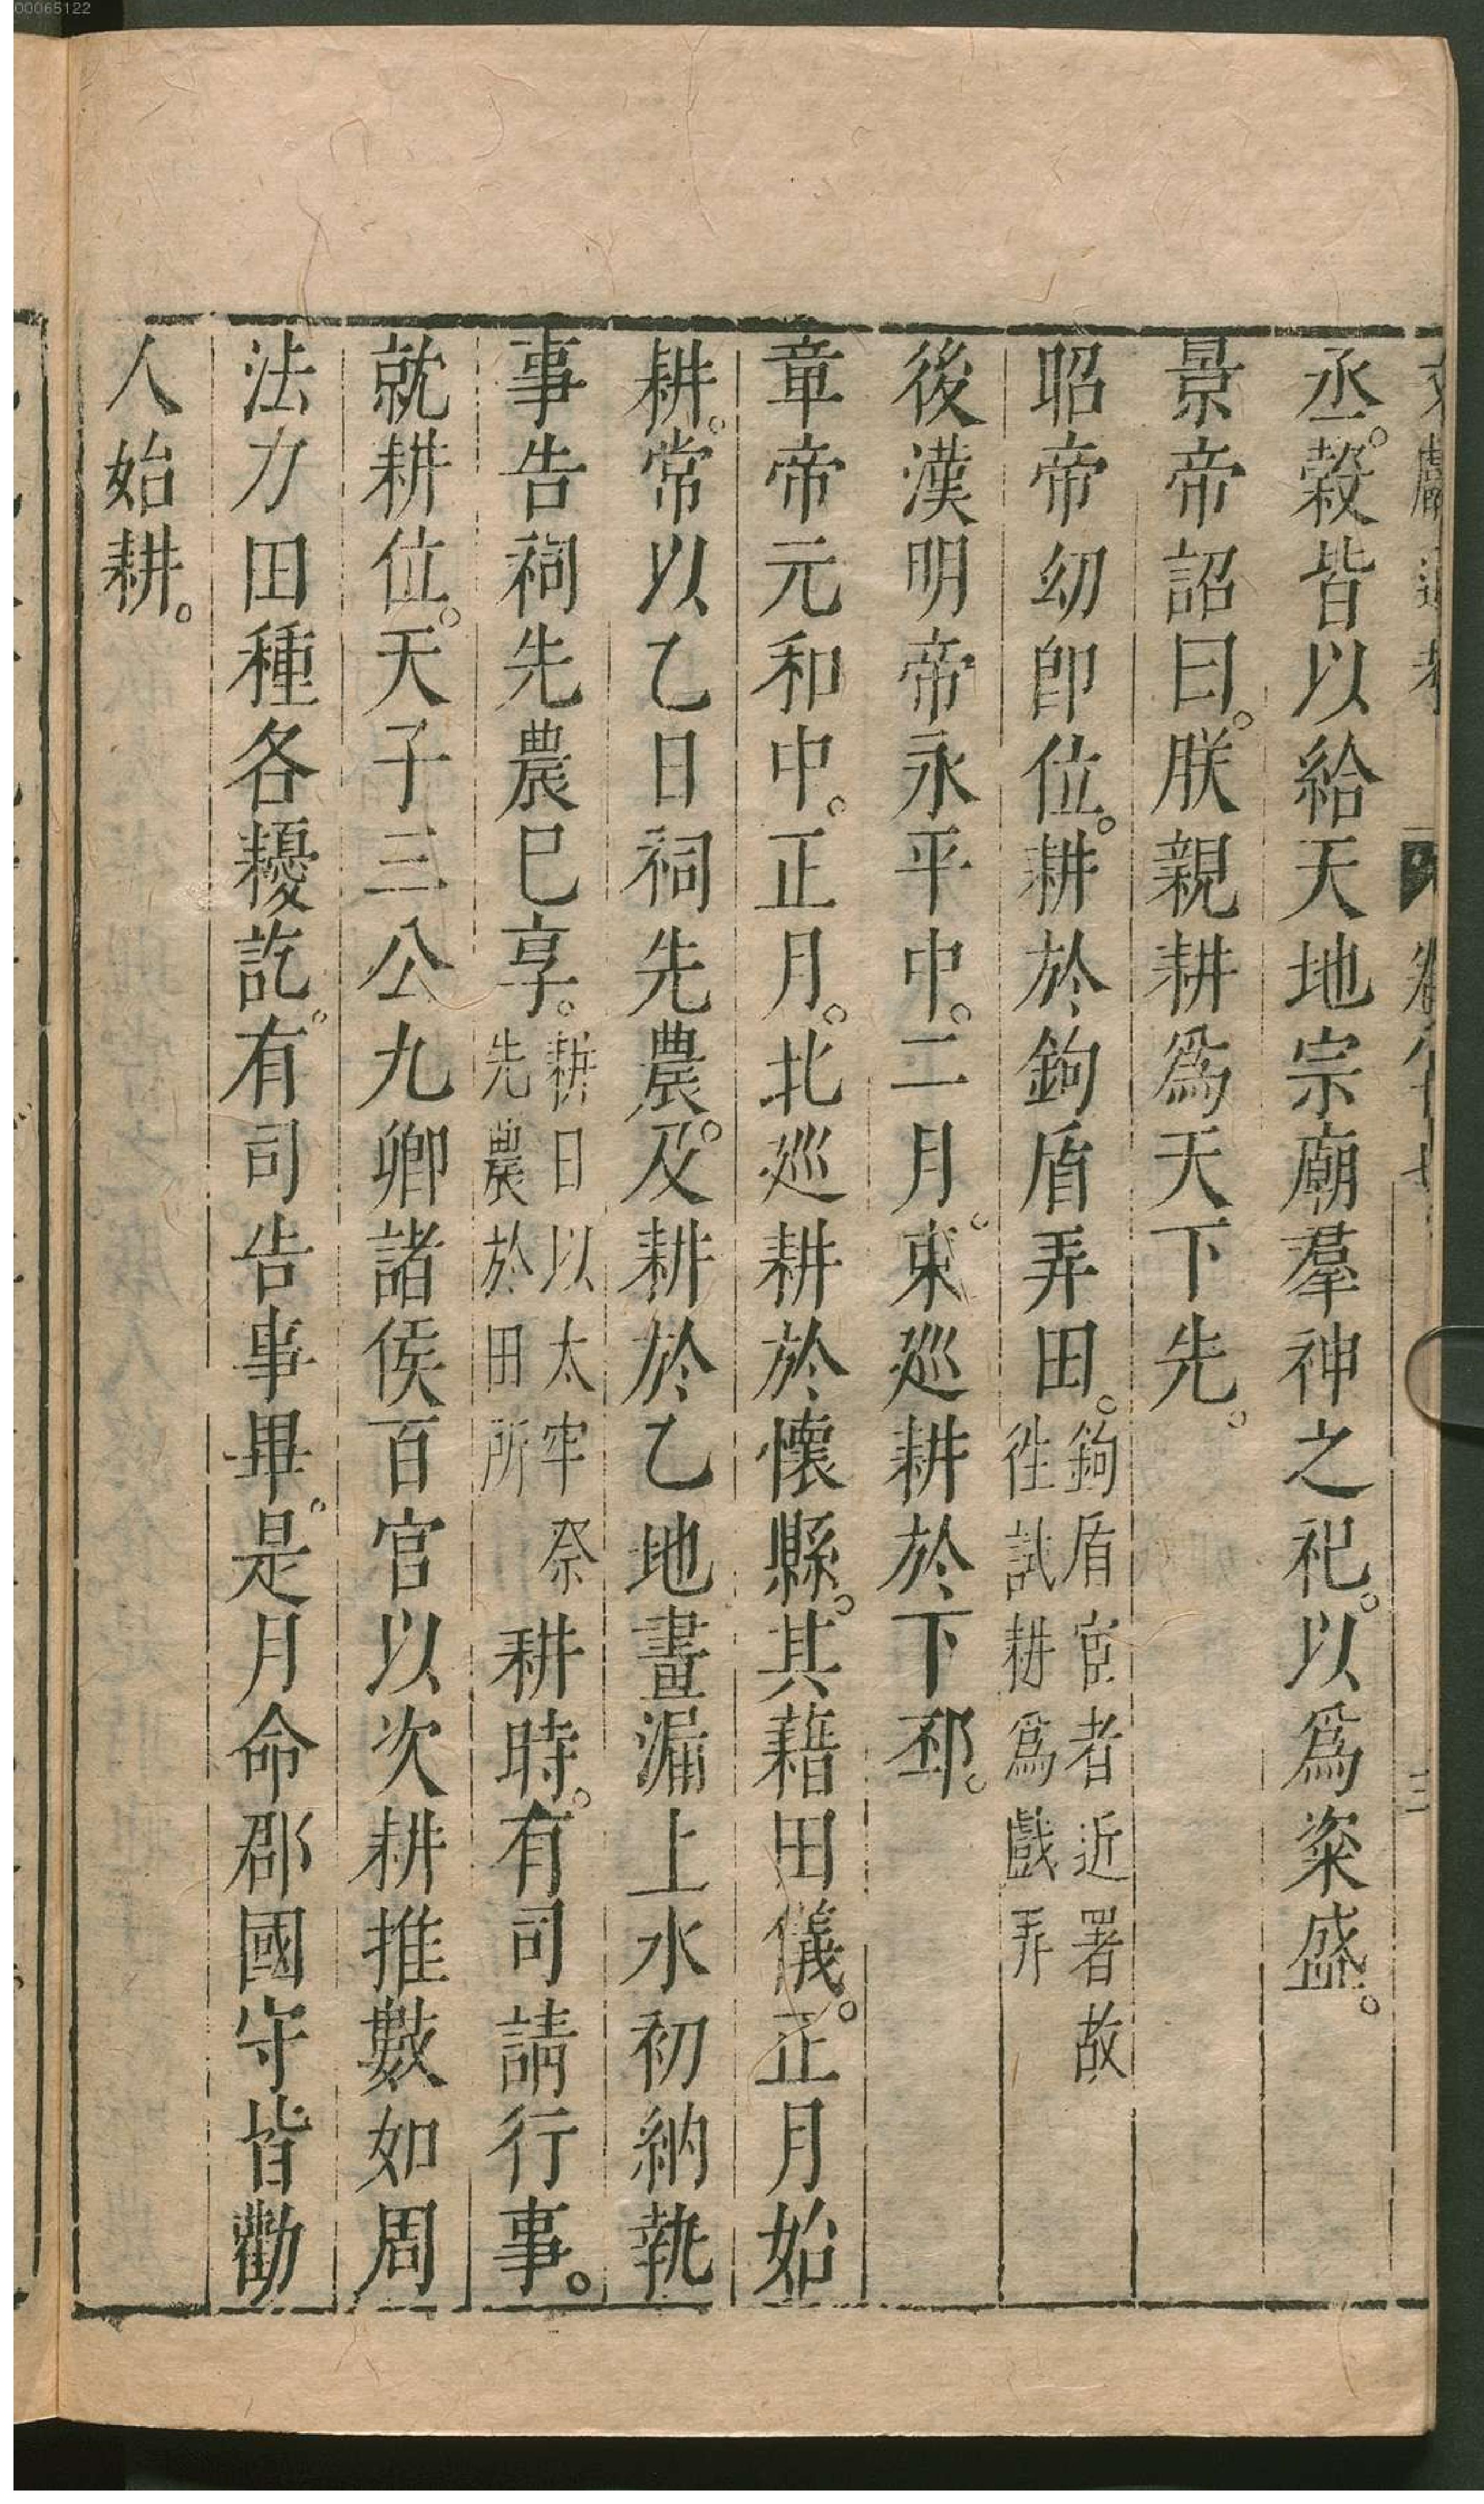 00065122
丞。穀皆以給天地宗廟羣神之祀。以爲粢盛。
景帝詔曰。朕親耕爲天下先。
昭帝幼卽位。耕於鉤盾弄田。鉤盾宦者近署故
徃試耕爲戲弄
後漢明帝永平中。二月。東巡耕於下邳。
章帝元和中。正月。北巡耕於懷縣。其藉田儀。正月始
耕。常以乙日祠先農。及耕於乙地晝漏上水初納執
事告祠先農已享。耕日以太牢祭
先農於田所
耕時。有司請行事。
就耕位。天子三公九卿諸侯百官以次耕推數如周
法力田種各耰訖。有司告事畢。是月命郡國守皆勸
人始耕。